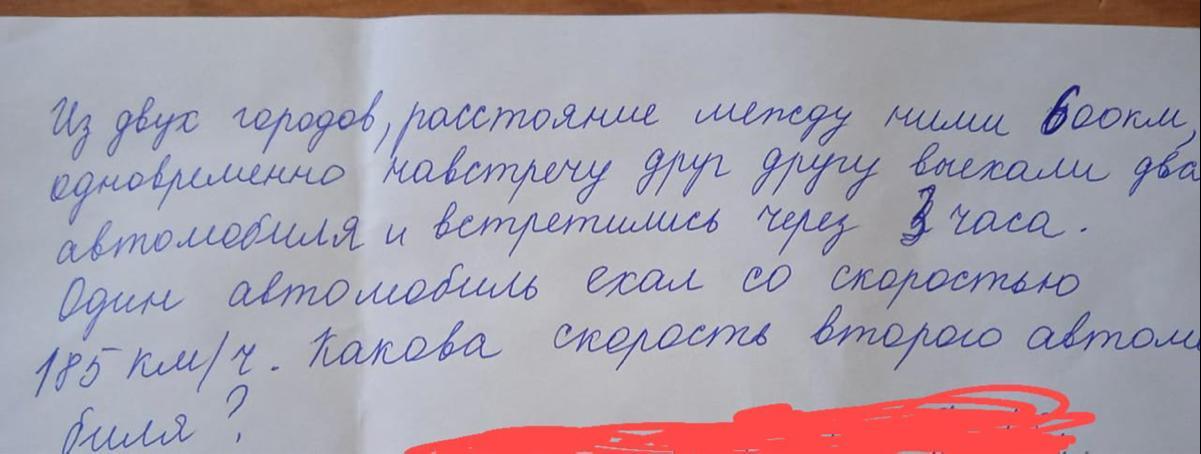 Из двух городов, расстояние между ними 600км,
одновременно навстречу друг другу выехали два
автомобиля и встретились через 3 часа.
Один автомобиль ехал со скоростью
185 км/ч. Какова скорость второго автом
биля?